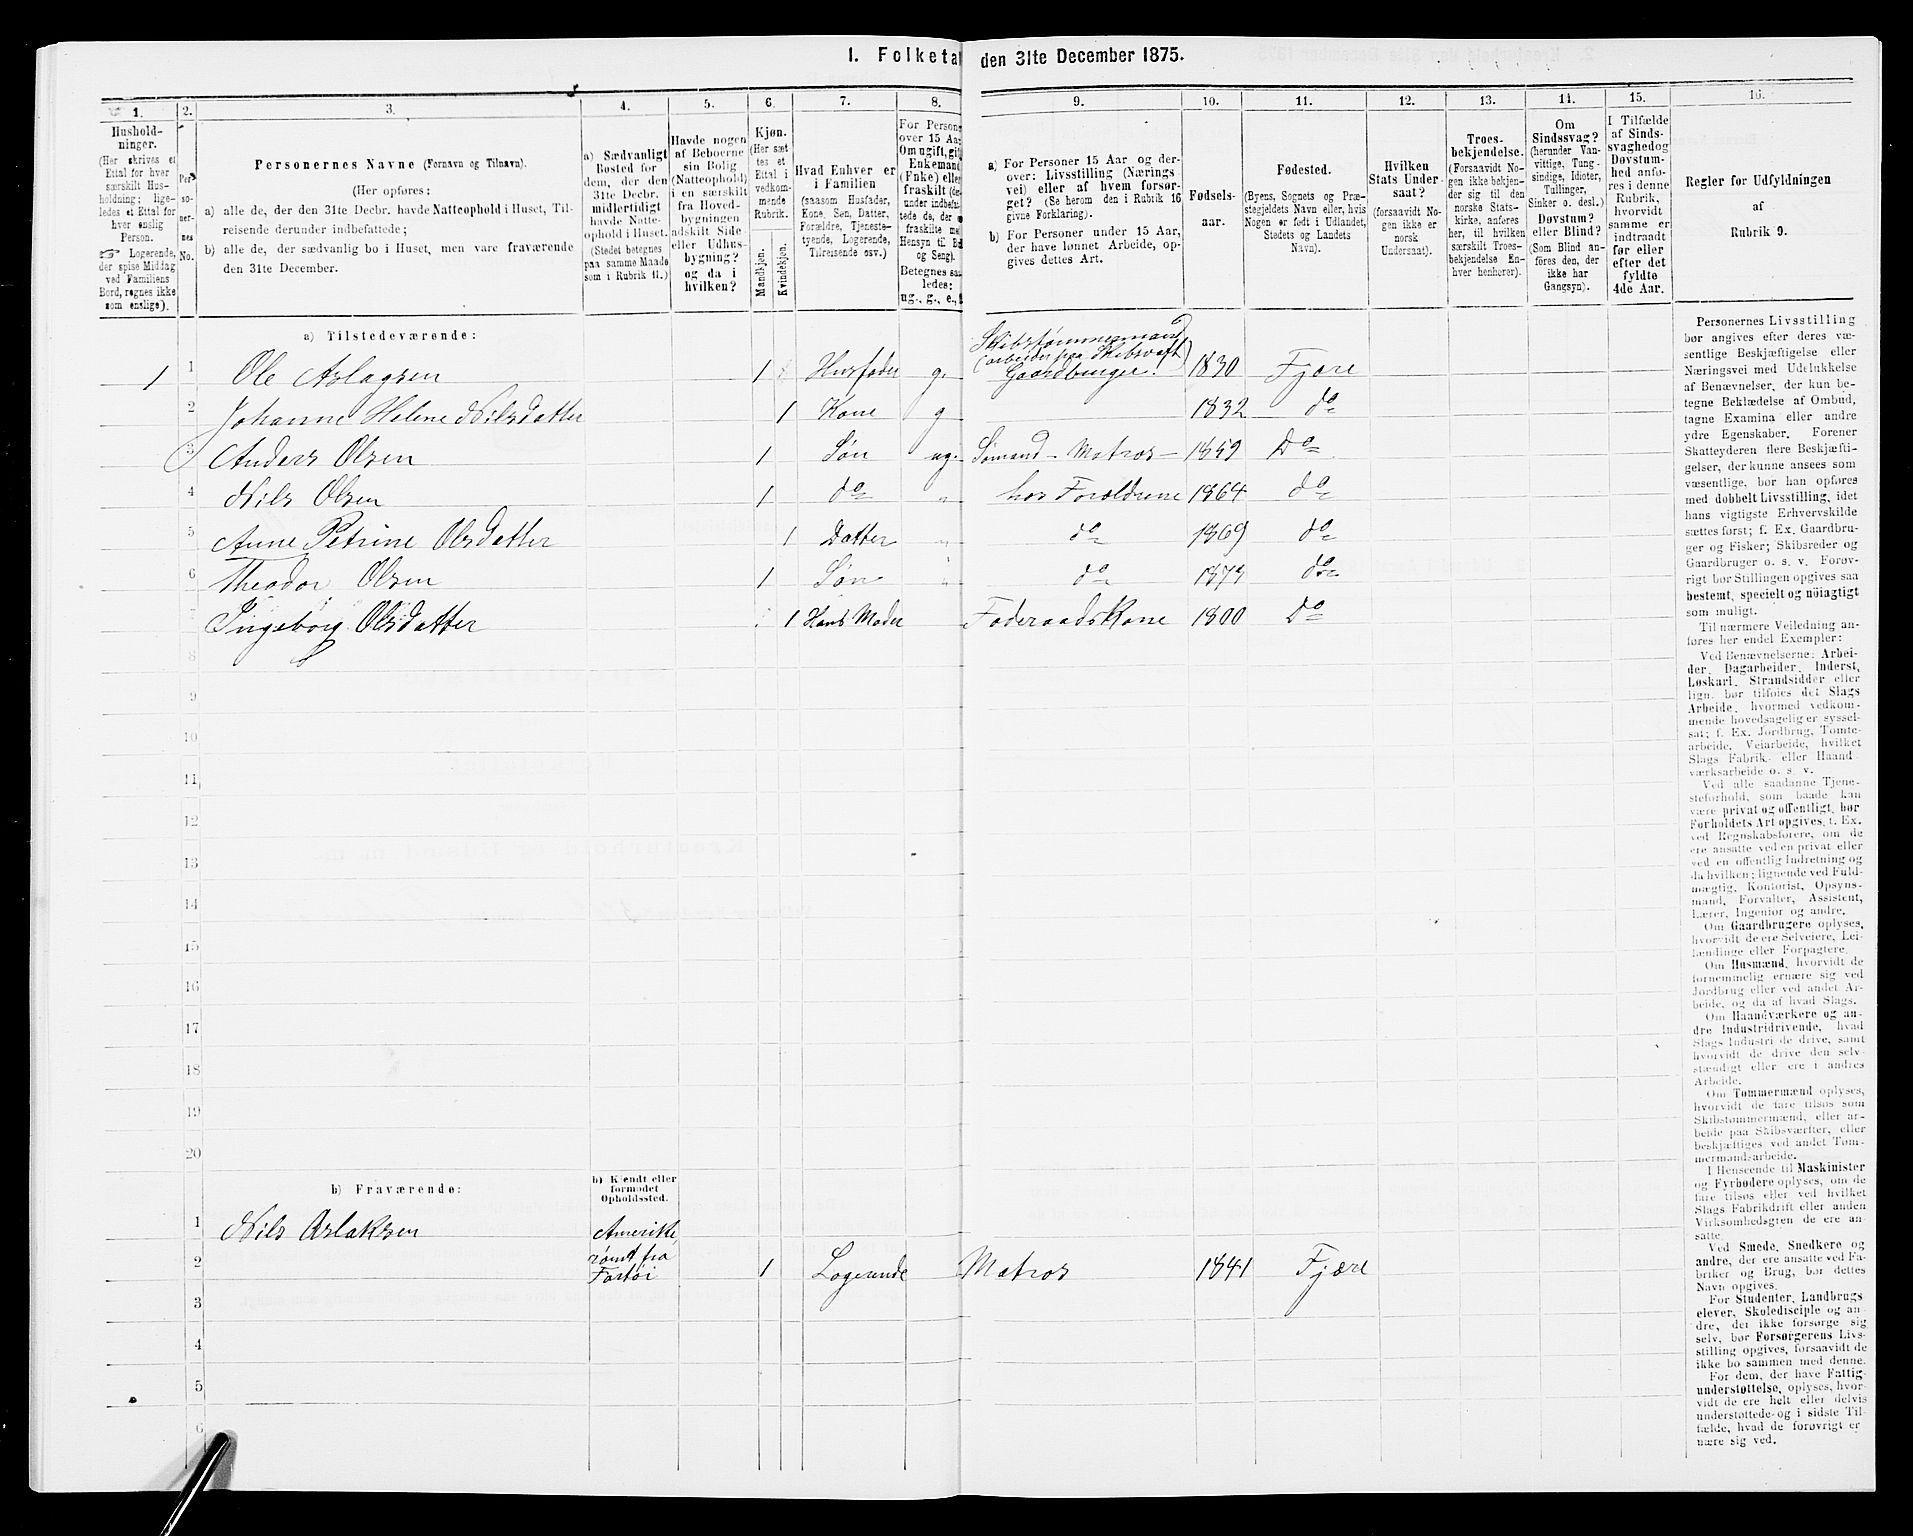 1. Folketal den 31te December 1875.
1. 2. 3. 4. 5. 6. 7. 8. 9. 10. 11. 12. 13. 14. 15. 16.
Hushold-
ninger.
(Her skrives et
Ettal for hver
særskilt Hus-
holdning; lige-
ledes et Ettal for
hver enslig
Person.
☞ Logerende,
der spise Middag
ved Familiens
Bord, regnes ikke
som enslige).
Per-
so-
ner-
nes
No.
Personernes Navne (Fornavn og Tilnavn).
(Her opføres:
a) alle de, der den 31te Decbr. havde Natteophold i Huset, Til-
reisende derunder indbefattede;
b) alle de, der sædvanlig bo i Huset, men vare fraværende
den 31te December.
a) Sædvanligt
Bosted for
dem, der den
31te Decbr.
midlertidigt
havde Natte-
ophold i Huset.
(Stedet betegnes
paa samme Maade
som i Rubrik 11.)
Havde nogen
af Beboerne
sin Bolig
(Natteophold)
i en særskilt
fra Hoved-
bygningen
adskilt Side-
eller Udhus-
bygning?
og da i
hvilken?
Kjøn.
(Her sæt
tes et
Ettal i
vedkom-
mende
Rubrik.
Mandkjøn.
Kvindekjøn.
Hvad Enhver er
i Familien
(saasom Husfader,
Kone, Søn, Datter,
Forældre, Tjeneste-
tyende, Logerende,
Tilreisende osv.)
For Person
over 15 Aar
Om ugift, gift
Enkemand
(Enke) eller
fraskilt (der-
under indbefat-
tede de, der e
fraskilte med
Hensyn til Bord
og Seng).
Betegnes saa
ledes:
ug., g., e., f.
a) For Personer 15 Aar og der-
over: Livsstilling (Nærings-
vei) eller af hvem forsør-
get? (Se herom den i Rubrik 16
givne Forklaring).
b) For Personer under 15 Aar,
der have lønnet Arbeide, op-
gives dettes Art.
Fødsels-
aar.
Fødested.
(Byens, Sognets og Præ-
stegjeldets Navn eller, hvis
Nogen er født i Udlandet,
Stedets og Landets
Navn).
Hvilken
Stats Under
saat?
(forsaavidt No-
gen ikke er
norsk
Undersaat).
Troes-
bekjendelse.
(Forsaavidt No-
gen ikke bekjen-
der sig til den
norske Stats-
kirke, anføres
her, til hvilken
særskilt Troes-
bekjendelse En-
hver henhører).
Om
Sindssvag?
(herunder Van-
vittige, Tung-
sindige, Idioter,
Tullinger,
Sinker o. desl.)
Døvstum?
eller Blind?
(Som Blind an-
føres den, der
ikke har
Gangsyn).
I Tilfælde
af Sinds-
svaghed og
Døvstum-
hed anfø-
res i denne
Rubrik,
hvorvidt
samme er
indtraadt
før eller
efter det
fyldte
4de Aar.
Regler for Udfyldningen
af
Rubrik 9.
a) Tilstedeværende:
1 1 Ole Aslagsen 1 Husfader g. Skibstømmermand (arbeider paa Skibsværft) Gaardbruger! 1830 Fjære
2 Johanne Helene Nilsdatter 1 Kone g 1832 do
3 Anders Olsen 1 Søn ug. Sømand - Matros - 1859 Do
4 Nils Olsen 1 do " hos Forældrene 1864 do
5 Anne Petrine Olsdatter 1 Datter " do 1869 do
6 Theodor Olsen 1 Søn " do 1873 do
7 Ingeborg Olsdatter 1 Hans Moder Føderaadskone 1800 Do
8
9
10
11
12
13
14
15
16
17
18
19
20
b) Fraværende:
b) Kjendt eller
formodet
Opholdssted.
1 Nils Aslaksen Amerika,
2 rømt fra
Fartøi 1 Logerende Matros 1841 Fjære
3
4
5
6
Personernes Livsstilling
bør angives efter deres væ-
sentlige Beskjæftigelse eller
Næringsvei med Udelukkelse
af Benævnelser, der kun be-
tegne Beklædelse af Ombud,
tagne Examina eller andre
ydre Egenskaber. Forener
Skatteyderen flere Beskjæfti-
gelser, der kunne ansees som
væsentlige, bør han opføres
med dobbelt Livsstilling, idet
hans vigtigste Erhvervskilde
sættes først; f. Ex. Gaardbru-
ger og Fisker; Skibsreder og
Gaardbruger o. s. v. Forøv-
rigt bør Stillingen opgives saa
bestemt, specielt og nøiagtigt
som muligt.
Til nærmere Veiledning an-
føres her endel Exempler:
Ved Benævnelserne: Arbei-
der, Dagarbeider, Inderst,
Løskarl, Strandsidder eller
lign. bør tilføies det Slags
Arbeide, hvormed vedkom-
mende hovedsagelig er syssel-
sat; f. Ex. Jordbrug, Tømte-
arbeide, Veiarbeide, hvilket
Slags Fabrik- eller Haand-
værksarbeide o. s. v.
Ved alle saadanne Tjene-
steforhold, som baade kan
være privat og offentligt, bør
Forholdets Art opgives, t. Ex.
ved Regnskabsførere, om de
ere ansatte ved en privat eller
ved en offentlig Indretning og
da hvilken; lignende ved Fuld-
mægtig, Kontorist, Opsyns-
mand, Forvalter, Assistent,
Lærer, Ingeniør og andre.
Om Gaardbrugere oplyses,
hvorvidt de ere Selveiere, Lei-
lændinge eller Forpagtere.
Om Husmænd, hvorvidt de
fornemmelig ernære sig ved
Jordbrug eller ved andet Ar-
beide, og da af hvad Slags.
Om Haandværkere og an-
dre Industridrivende, hvad
Slags Industri de drive, samt
hvorvidt de drive den selv-
stændigt eller ere i andres
Arbeide.
Om Tømmermænd oplyses,
hvorvidt de fare tilsøs som
Skibstømmermænd, eller ar-
beide paa Skibsværfter, eller
beskjæftiges ved andet Tøm-
mermandsarbeide.
I Henseende til Maskinister
og Fyrbødere oplyses, om de
fare tilsøs eller ved hvilket
Slags Fabrikdrift eller anden
Virksomhedsgren de ere an-
satte.
Ved Smede, Snedkere og
andre, der ere ansatte ved Fa-
briker og Brug, bør dettes
Navn opgives.
For Studenter, Landbrugs
elever, Skoledisciple og an-
dre, der ikke forsørge sig
selv, bør Forsørgerens Livs-
stilling opgives, forsaavidt de
ikke bo sammen med denne.
For dem, der have Fattig-
understøttelse, oplyses, hvor-
vidt de ere helt eller delvis
understøttede og i sidste Til-
fælde, hvad de forøvrigt er
nære sig ved.